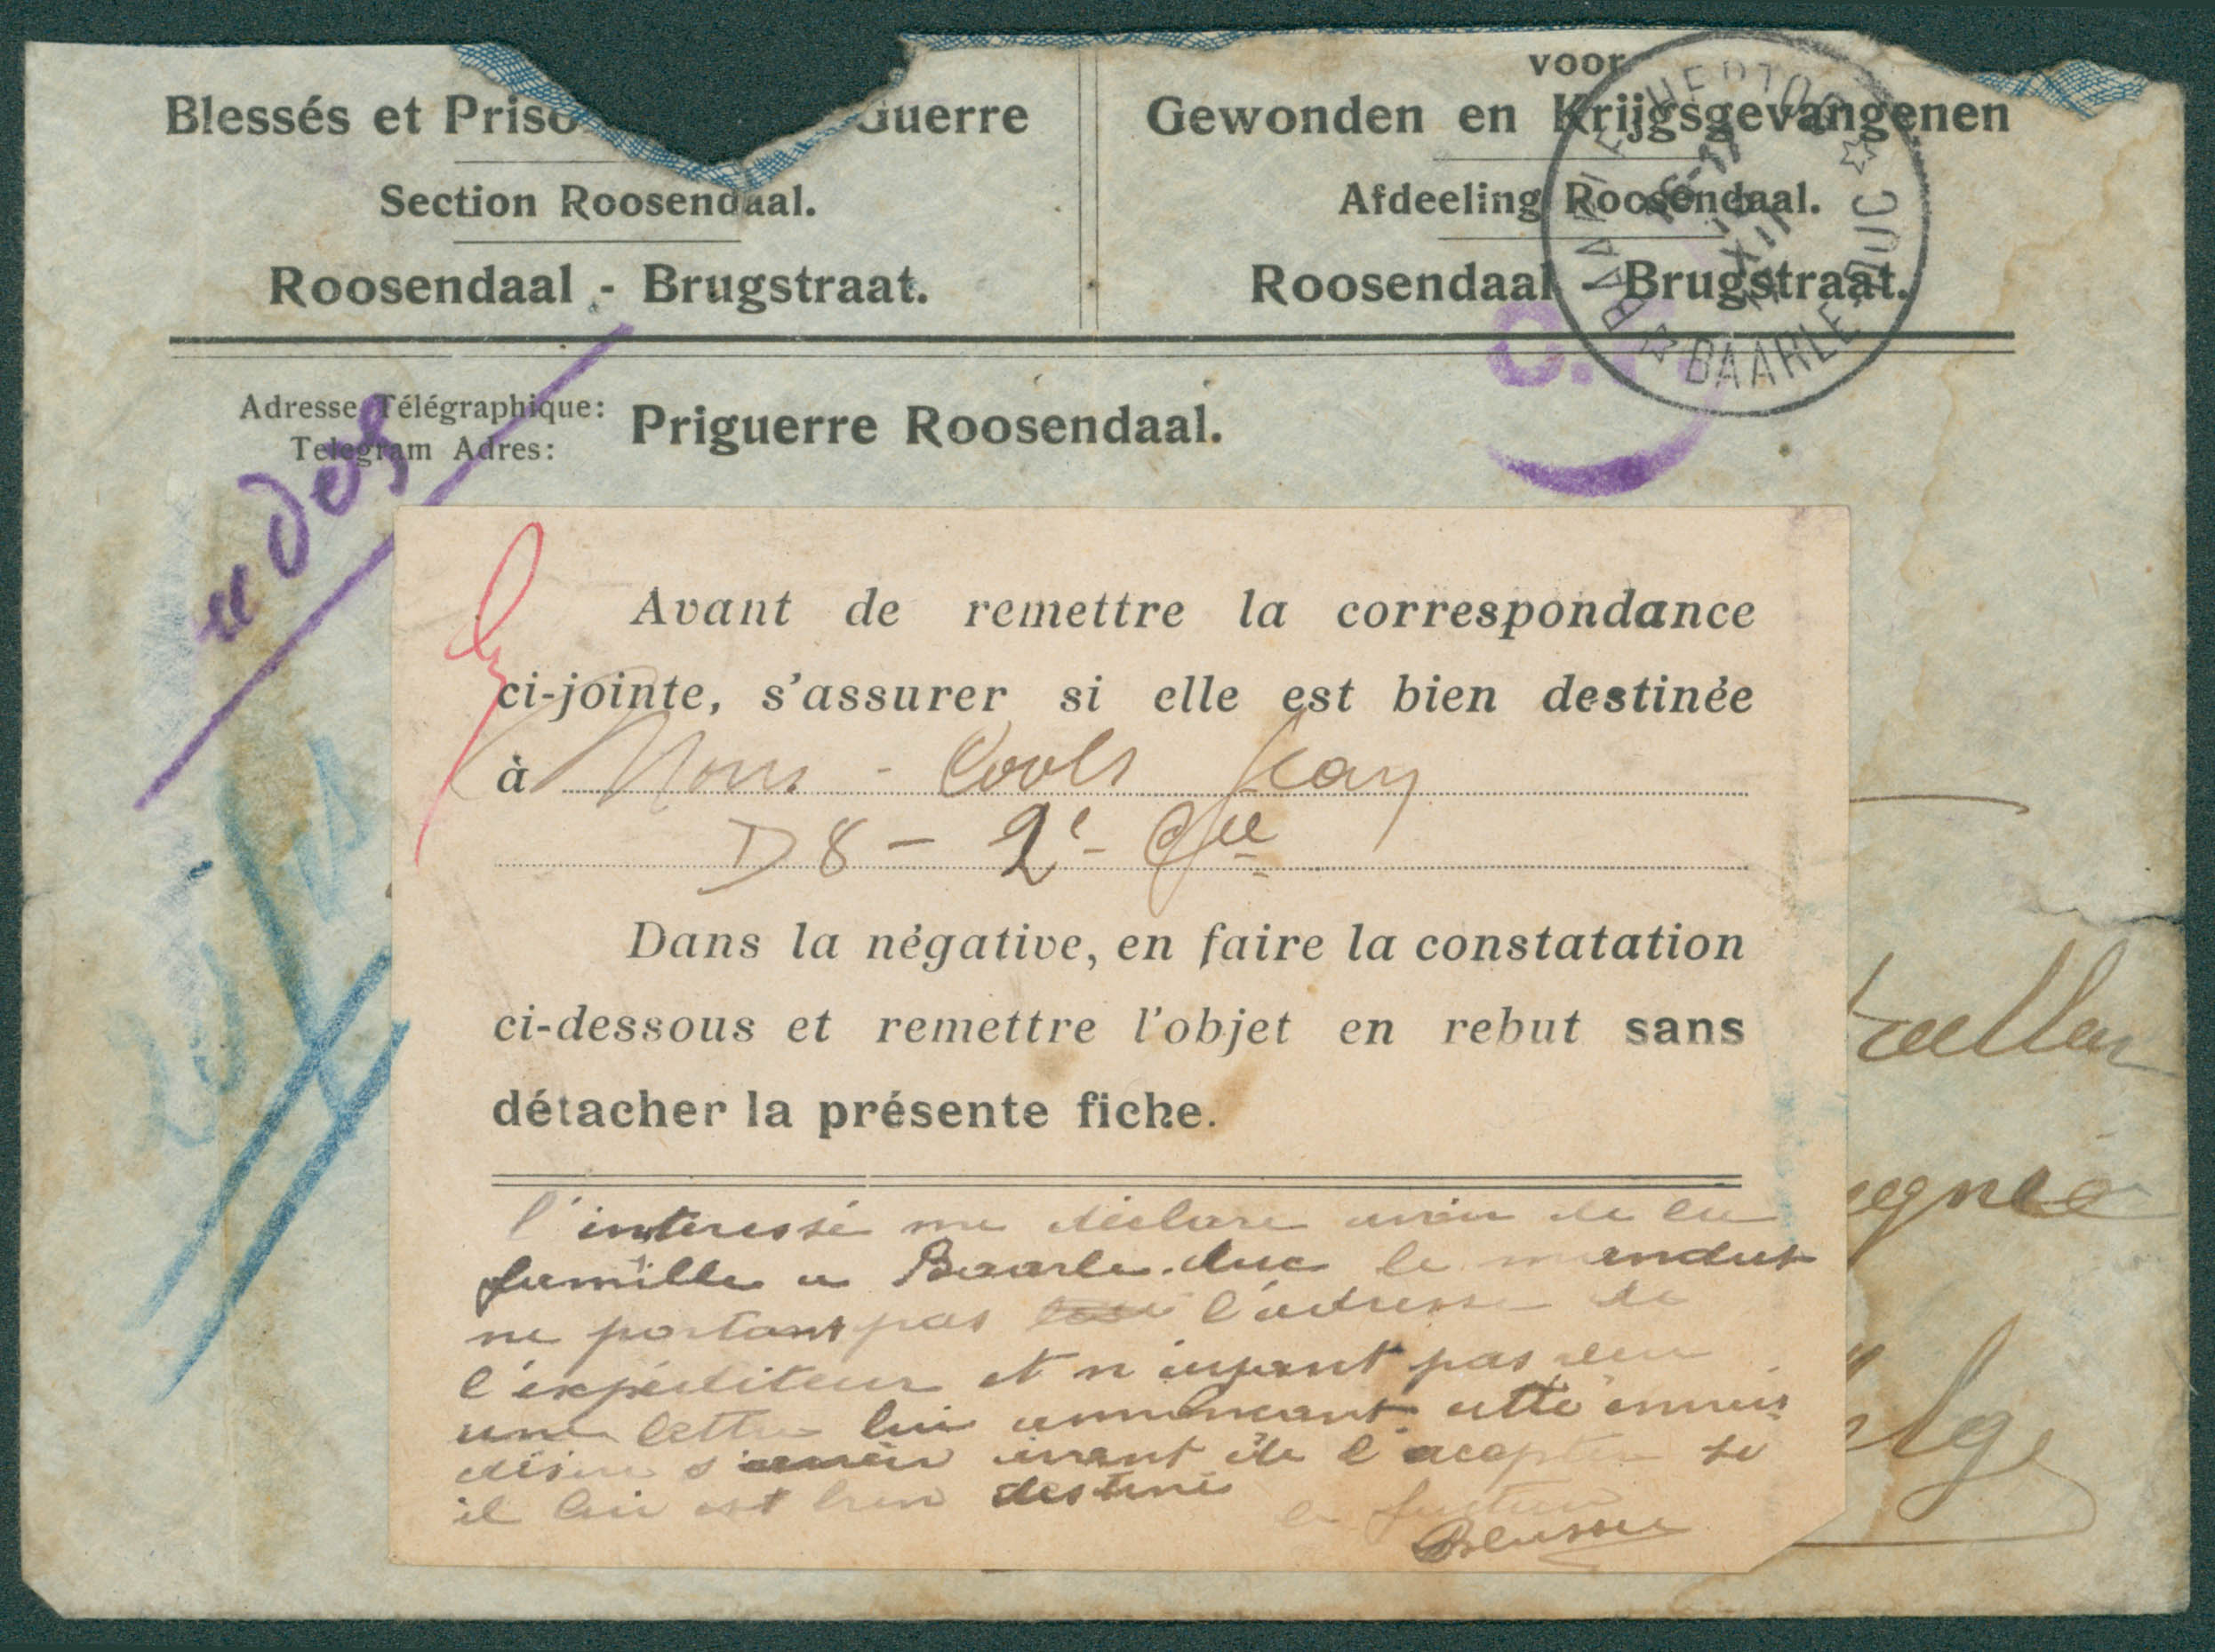 Blessés et Priso Guerre
Section Roosendaal.
Roosendaal - Brugstraat.
voor
Gewonden en Krijgsgevangenen
Afdeeling Roosendaal.
Roosendaal - Brugstraat.
BAARLE-DUC
Adresse Télégraphique:
Telegram Adres:
Priguerre Roosendaal.
Avant de remettre la correspondance
ci-jointe, s'assurer si elle est bien destinée
à Mons - Cools Jean
D 8 - 2e - Cie
Dans la négative, en faire la constatation
ci-dessous et remettre l'objet en rebut sans
détacher la présente fiche.
l'interessé me déclare avoir de la
famille a Baarle.duc le mandat
ne portant pas l'adresse de
l'expéditeur et n'ayant pas eu
une lettre lui annoncant cette envoi
désire savoir avant de l'acepter si
il lui est bien destiné
le facteur